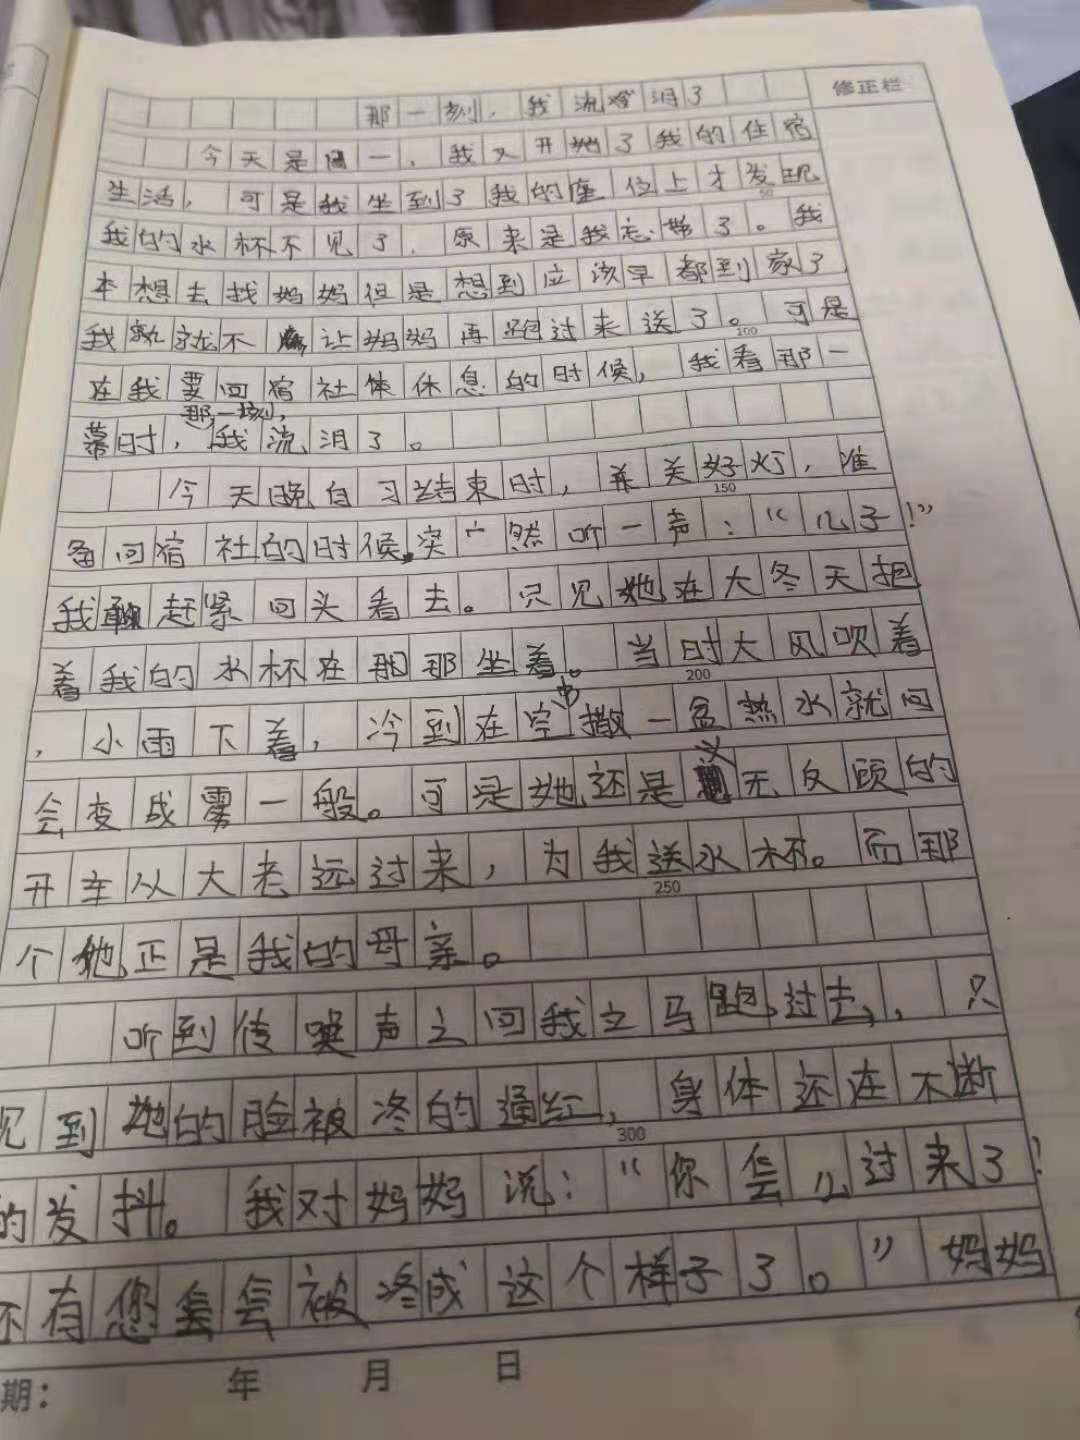 修正栏
那一刻，我流泪了
今天是周一，我又开始了我的住宿
生活，可是我坐到了我的座位上才发现
50
我的水杯不见了，原来是我忘拿了。我
本想去找妈妈但是想到应该早都到家了
我就就不让妈妈再跑过来送了。可是
100
在我要回宿社休息的时候，我看那一
那一刻，
幕时，我流泪了。
今天晚自习结束时，关好灯，准
150
备回宿社的时候，突然听一声：“儿子！”
我赶紧回头看去。只见她在大冬天抱
着我的水杯在那那坐着。当时大风吹着
200
，小雨下着，冷到在空中撒一盆热水就问
会变成雾一般。可是她还是义无反顾的
开车从大老远过来，为我送水杯。而那
250
个她正是我的母亲。
听到传唤声之回我立马跑过去，，只
见到她的脸被冻的通红，身体还在不断
300
的发抖。我对妈妈说：“你怎么过来了！
还有您怎会被冻成这个样子了。”妈妈
期：年 月 日